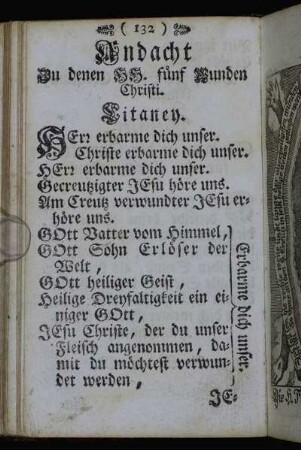 ( 132 )
Andacht
Zu denen HH. fünf Wunden
Christi.
Litaney.
HErr erbarme dich unser.
Christe erbarme dich unser.
HErr erbarme dich unser.
Gecreutzigter JEsu höre uns.
Am Creutz verwundter JEsu er-
höre uns.
GOtt Vatter vom Himmel,
GOtt Sohn Erlöser der
Welt,
GOtt heiliger Geist,
Heilige Dreyfaltigkeit ein ei-
niger GOtt,
JEsu Christe, der du unser
Fleisch angenommen, da-
mit du möchtest verwun-
det werden,
Erbarme dich unser.
JE-